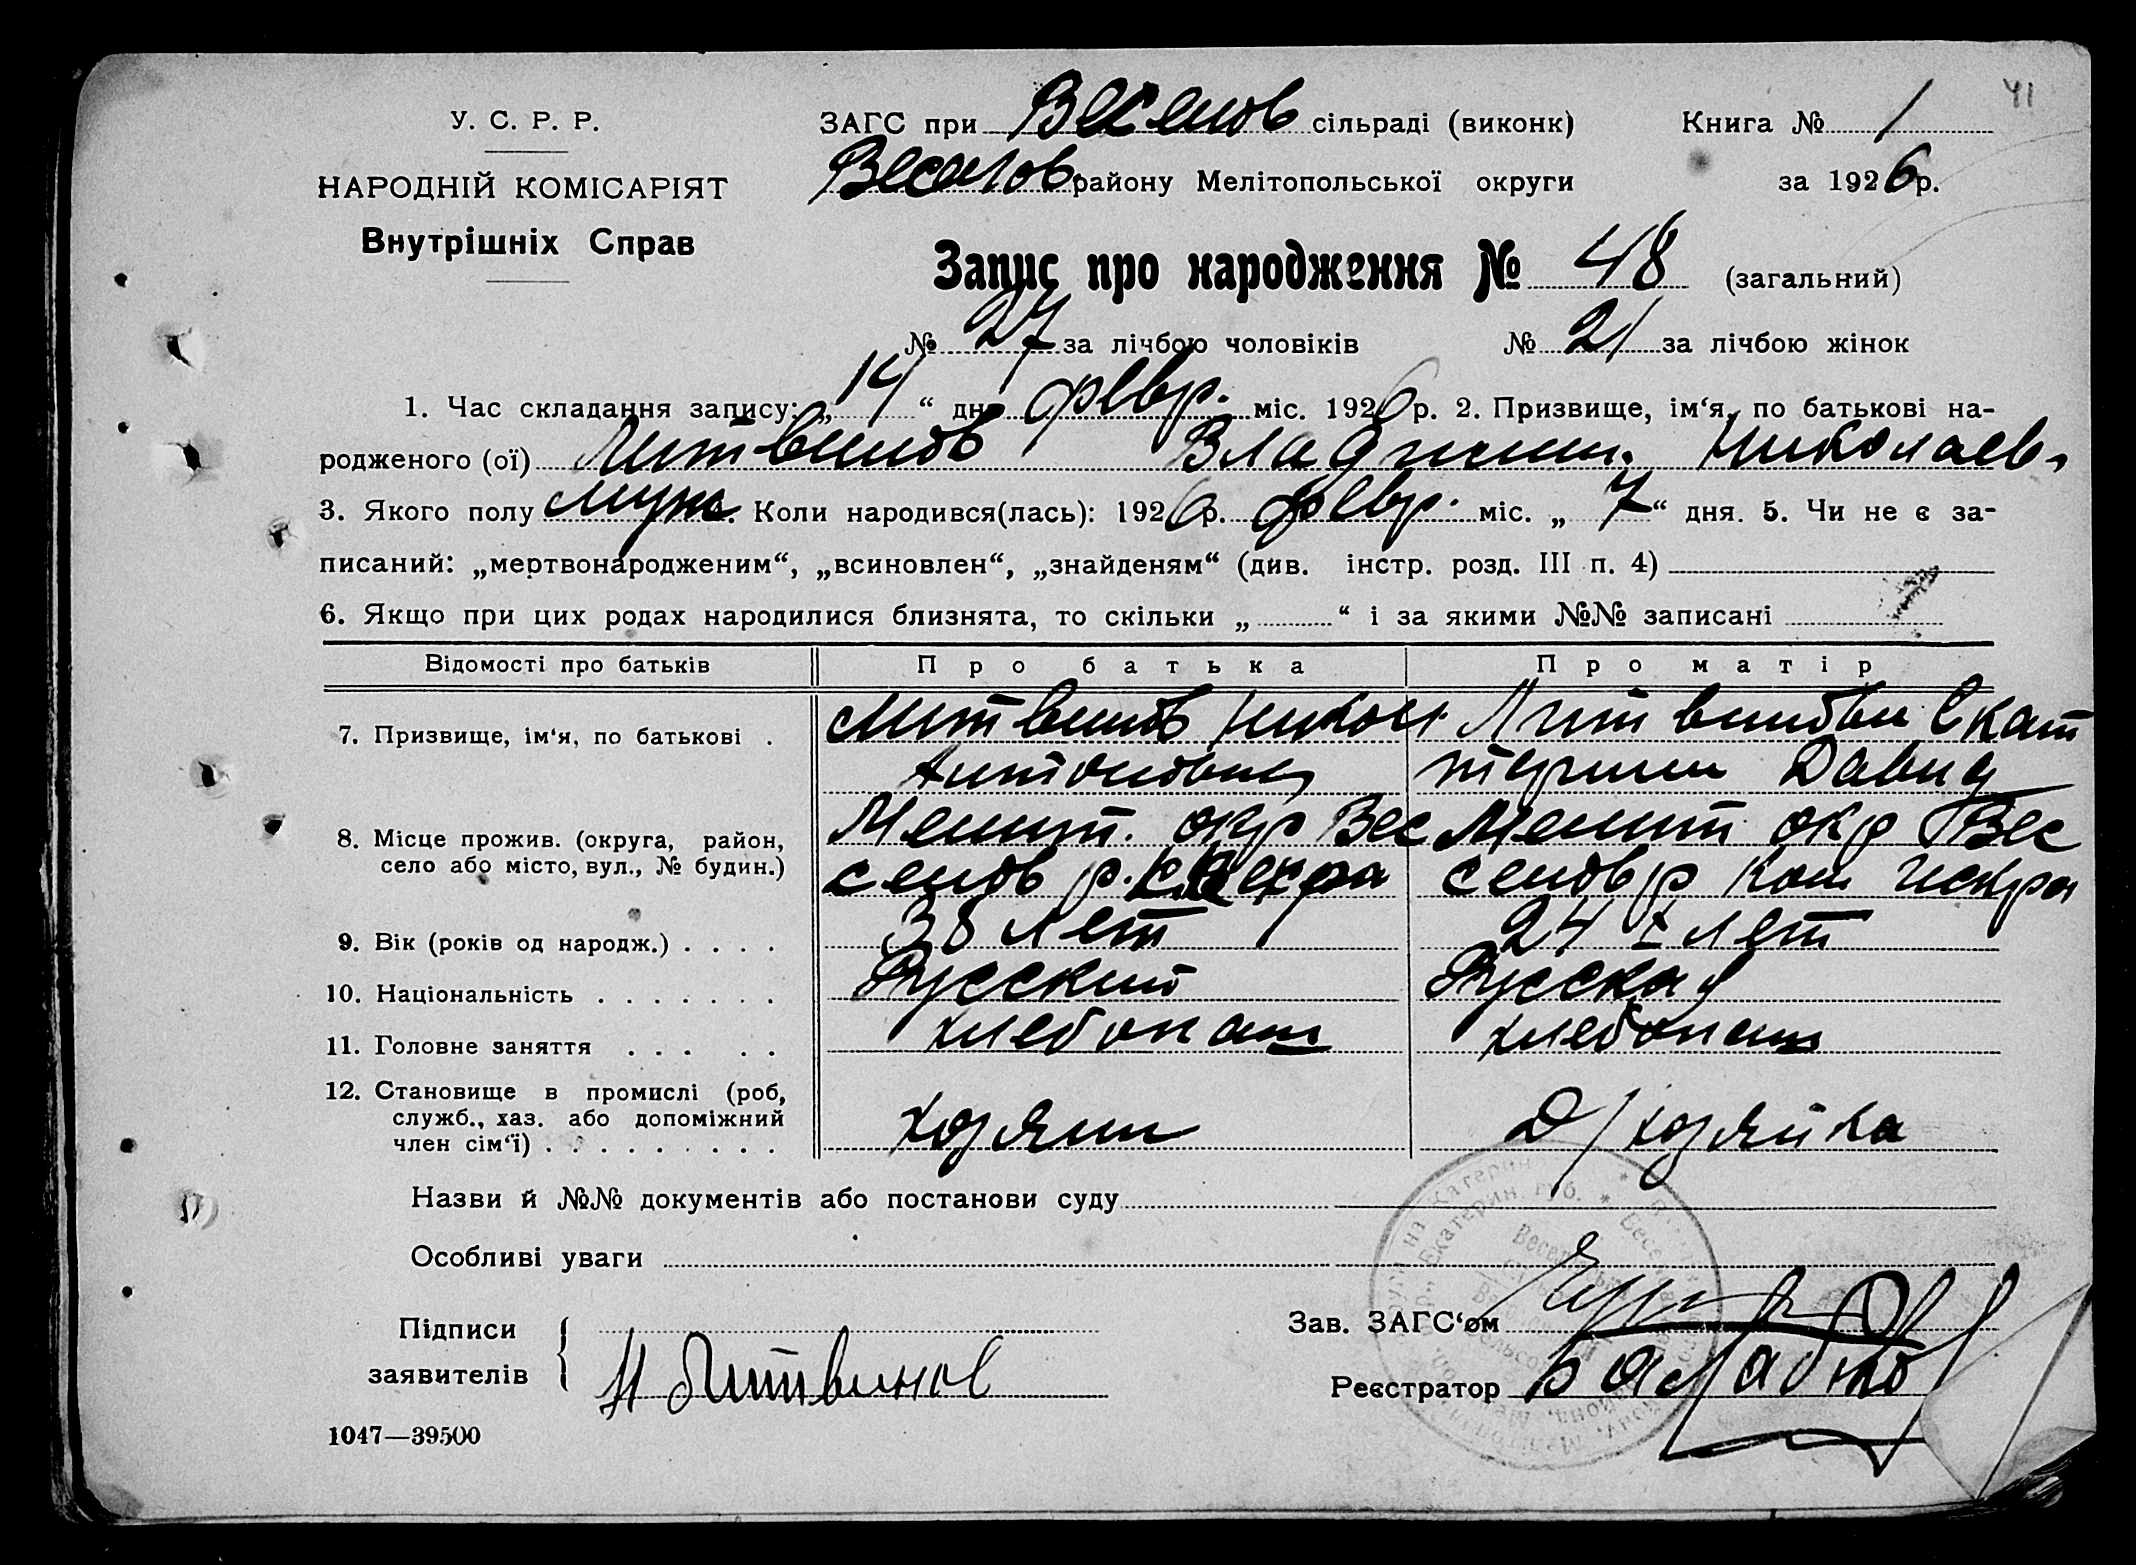 41
У. С. Р. Р.
НАРОДНІЙ КОМІСАРІЯТ
Внутрішніх Справ
ЗАГС при Веселов сільраді (виконк)
Веселов. району Мелітопольської округи
Книга № 1
за 1926 р.
Запис про народження № 48 (загальний)
№ 27 за лічбою чоловіків № 21 за лічбою жінок
1. Час складання запису: „14“ дня февр. міс. 1926 р. 2. Призвище, ім‘я, по батькові на-
родженого (ої) Литвинов Владимир. Николаев.
3. Якого полу муж. Коли народився(лась): 1926 р. февр. міс. „7“ дня. 5. Чи не є за-
писаний: „мертвонародженим“, „всиновлен“, „знайденям“ (див. інстр. розд. III п. 4)
6. Якщо при цих родах народилися близнята, то скільки „ “ і за якими №№ записані
Відомості про батьків Про батька Про матір
7. Призвище, ім‘я, по батькові . Литвинов Никол. Литвинова Екат
Антонович терина Давид
8. Місце прожив. (округа, район, Мелит. окр Вес Мелит окр Вес
село або місто, вул., № будин.) селов р. Искра селов р Ком Искра
9. Вік (років од народж.) . . . . 38 лет 24 лет
10. Національність . . . . . . . Русский Русская
11. Головне заняття . . . . . хлебопаш хлебопаш
12. Становище в промислі (роб,
служб., хаз. або допоміжний
член сім‘ї) . . . . . . . . . хозяин Д/хозяйка
Назви й №№ документів або постанови суду
Особливі уваги
Підписи
заявителів Н Литвинов
Зав. ЗАГС‘ом
Реєстратор
1047—39500